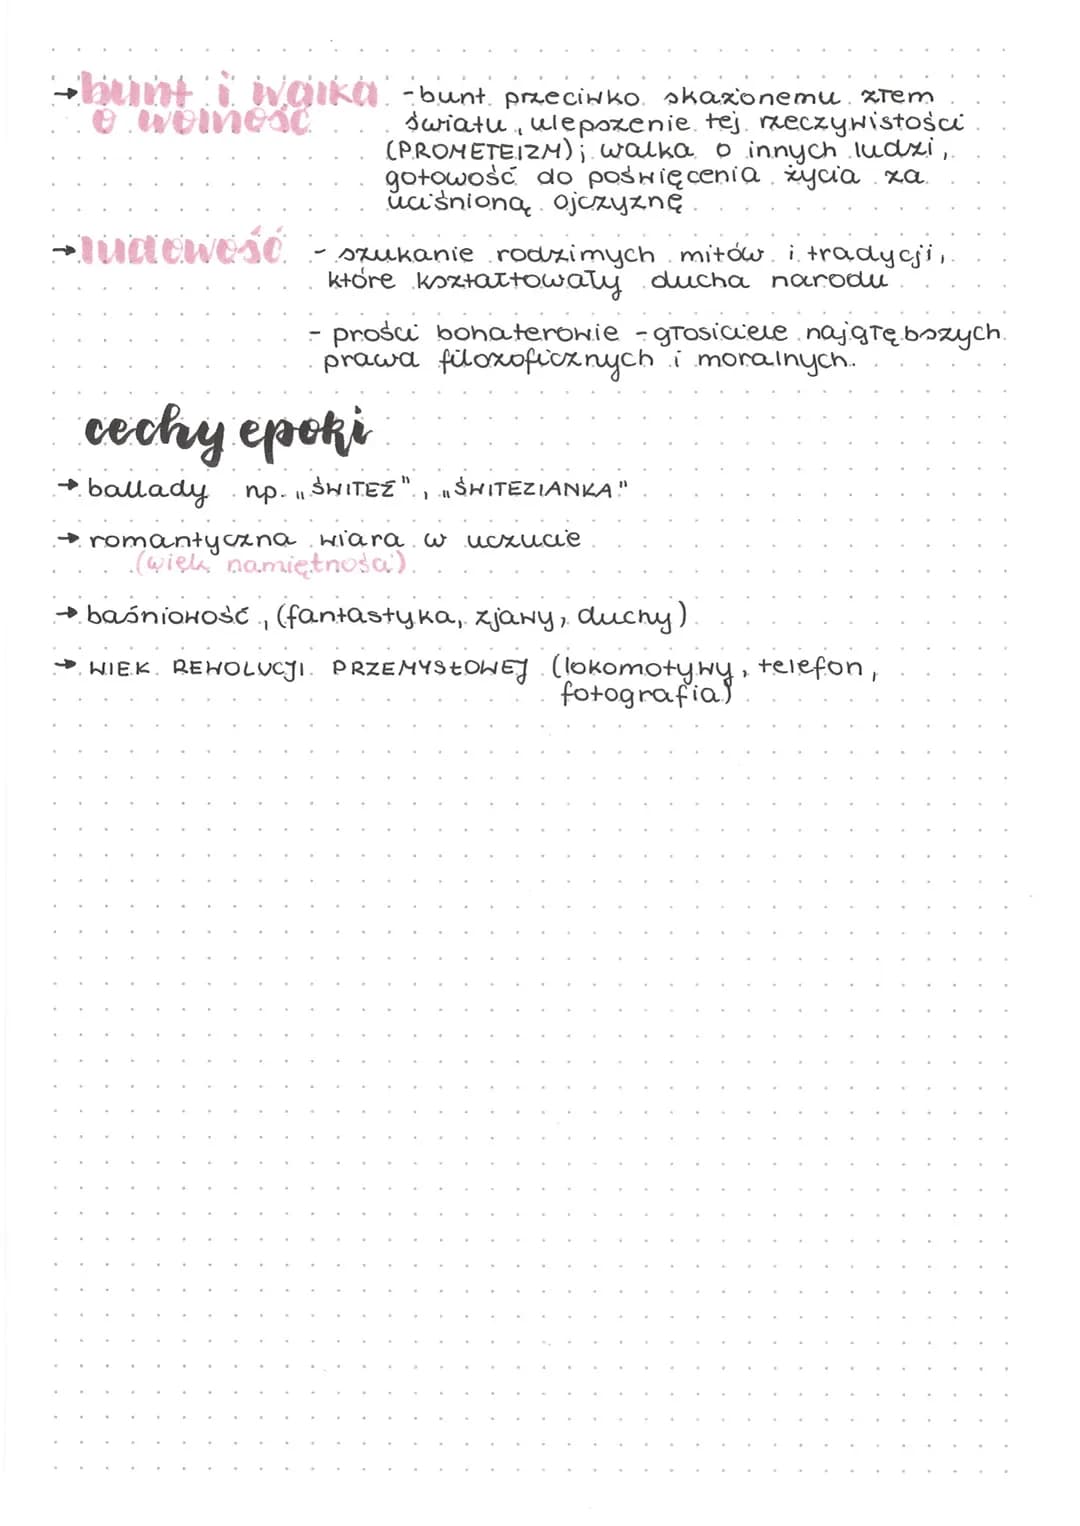 → bunt i walka - bunt przeciwko skażonemu złem
o wolność świalu, ulepszenie tej rzeczywistości
(PROMETEIZM); walka o innych ludzi,
gotowość do poświęcenia życia za
uciśnioną ojczyznę
→ ludowość - szukanie rodzimych mitów i tradycji,
które kształtowały ducha narodu
- prości bohaterowie - głosiciele najgłębszych
prawd filozoficznych i moralnych.
cechy epoki
→ ballady np. „ŚWITEŹ", „ŚWITEZIANKA"
→ romantyczna wiara w uczucie
(wiek namiętności)
→ baśniowość, (fantastyka, zjawy, duchy)
→ WIEK REWOLUCJI PRZEMYSŁOWEJ (lokomotywy, telefon,
fotografia)